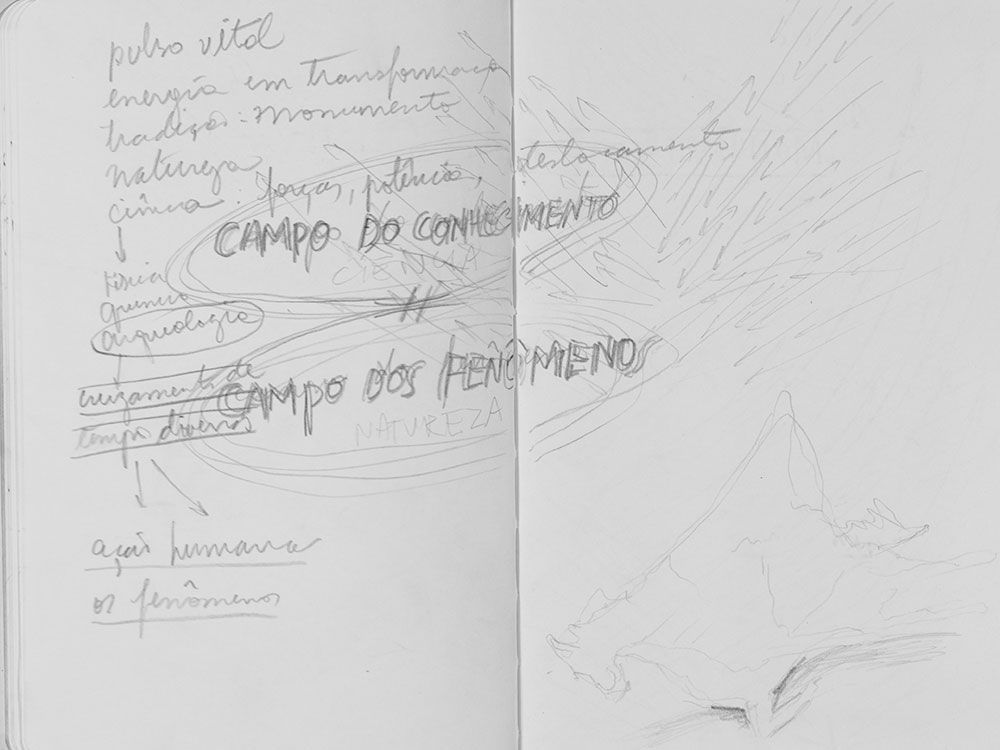 pulso vital
energia em transformação
tradição - monumento
natureza
ciência : forças, potência, deslocamento
CAMPO DO CONHECIMENTO
CIÊNCIA
física
química
arqueologia
cruzamento de
tempo diversos
CAMPO DOS FENÔMENOS
NATUREZA
ação humana
os fenômenos